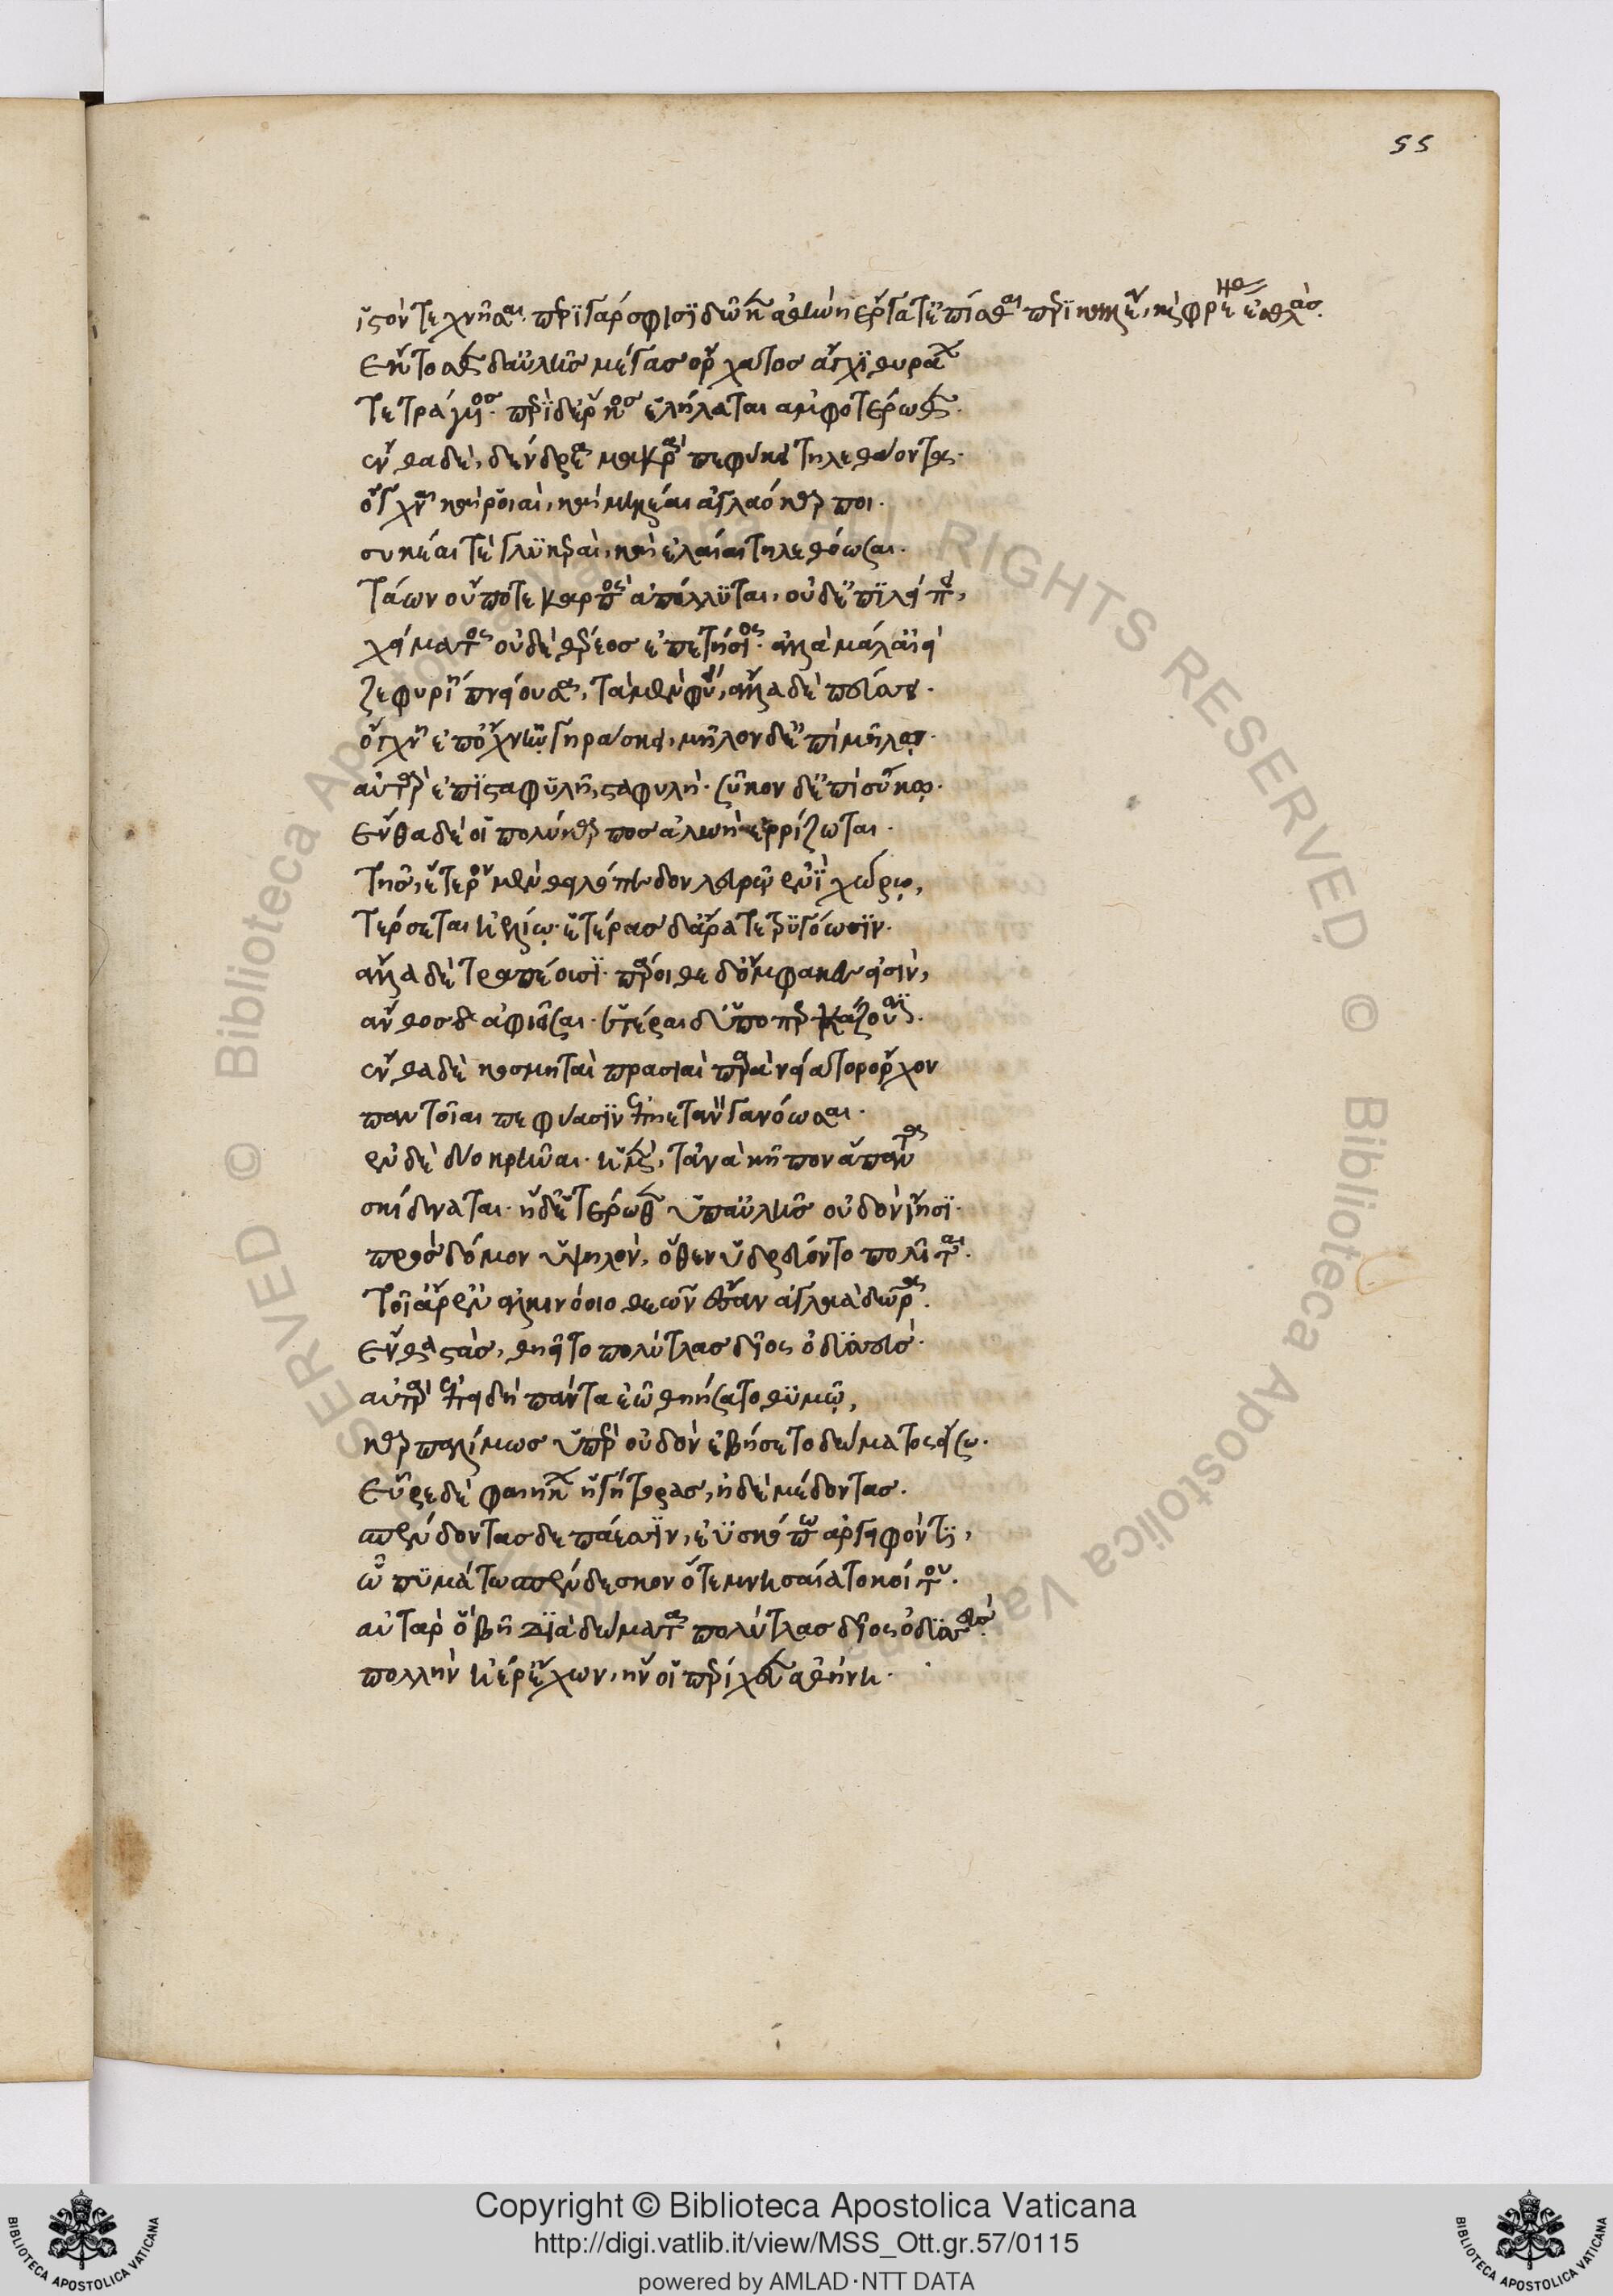 55
ἱστὸν τεχνῆσαι· περὶ γάρ σφισι δῶκεν ἀθήνη ἔργα τ' ἐπίστασθαι περικαλλέα, καὶ φρένας ἐσθλάς.
ἔκτοσθεν δ' αὐλῆς μέγας ὄρχατος ἄγχι θυράων
τετράγυος· περὶ δ' ἕρκος ἐλήλαται ἀμφοτέρωθεν.
ἔνθα δὲ, δένδρεα μακρὰ πεφύκει τηλεθάοντα.
ὄγχναι καὶ ῥοιαὶ, καὶ μηλέαι ἀγλαόκαρποι.
συκέαι τὲ γλυκεραὶ, καὶ ἐλαίαι τηλεθόωσαι.
τάων οὔποτε καρπὸς ἀπόλλυται, οὐδ' ἐπιλείπει,
χείματος οὐδὲ θέρεος ἐπετήσιος· ἀλλὰ μάλ' αἰεὶ
ζεφυρίη πνείουσα, τὰ μὲν φύει, ἄλλα δὲ πέσσει.
ὄγχνη ἐπ' ὄγχνῃ γηράσκει, μῆλον δ' ἐπὶ μήλῳ.
αὐτὰρ ἐπὶ σταφυλῇ, σταφυλὴ· σῦκον δ' ἐπὶ σύκῳ.
ἔνθα δὲ οἱ πολύκαρπος ἀλωὴ ἐρρίζωται.
τῆς, ἕτερον μὲν θειλόπεδον λευρῷ ἐνὶ χώρῳ,
τέρσεται ἠελίῳ· ἑτέρας δ' ἄρα τε τρυγόωσιν.
ἄλλας δὲ τραπέουσι· πάροιθε δ' ὄμφακες εἰσὶν,
ἄνθος ἀφιεῖσαι· ἕτεραι δ' ὑποπερκάζουσι.
ἔνθα δὲ κοσμηταὶ πρασιαὶ παρὰ νείατον ὄρχον
παντοῖαι πεφύασιν ἐπηετανὸν γανόωσαι.
ἐν δὲ δύο κρῆναι· ἡ μέν, τ' ἀνὰ κῆπον ἅπαντα
σκίδναται· ἡ δ' ἑτέρωθεν ὑπ' αὐλῆς οὐδὸν ἵησι.
πρὸς δόμον ὑψηλὸν, ὅθεν ὑδρεύοντο πολῖται.
τοῖ' ἄρ' ἐν ἀλκινόοιο θεῶν ἔσαν ἀγλαὰ δῶρα.
ἔνθα στὰς, θηεῖτο πολύτλας δῖος ὀδυσσεύς.
αὐτὰρ ἐπειδὴ πάντα ἑῷ θηήσατο θυμῷ,
καρπαλίμως ὑπὲρ οὐδὸν ἐβήσετο δώματος εἴσω.
εὗρε δὲ φαιήκων ἡγήτορας, ἠδὲ μέδοντας.
σπένδοντας δεπάεσσιν, ἐϋσκόπῳ ἀργειφόντῃ,
ᾧ πυμάτῳ σπένδεσκον ὅτε μνησαίατο κοίτου.
αὐτὰρ ὁ βῆ διὰ δώματα πολύτλας δῖος ὀδυσσεύς.
πολλὴν ἠέρ' ἔχων, ἥν οἱ περίχευεν ἀθήνη.
Copyright © Biblioteca Apostolica Vaticana
http://digi.vatlib.it/view/MSS_Ott.gr.57/0115
powered by AMLAD·NTT DATA